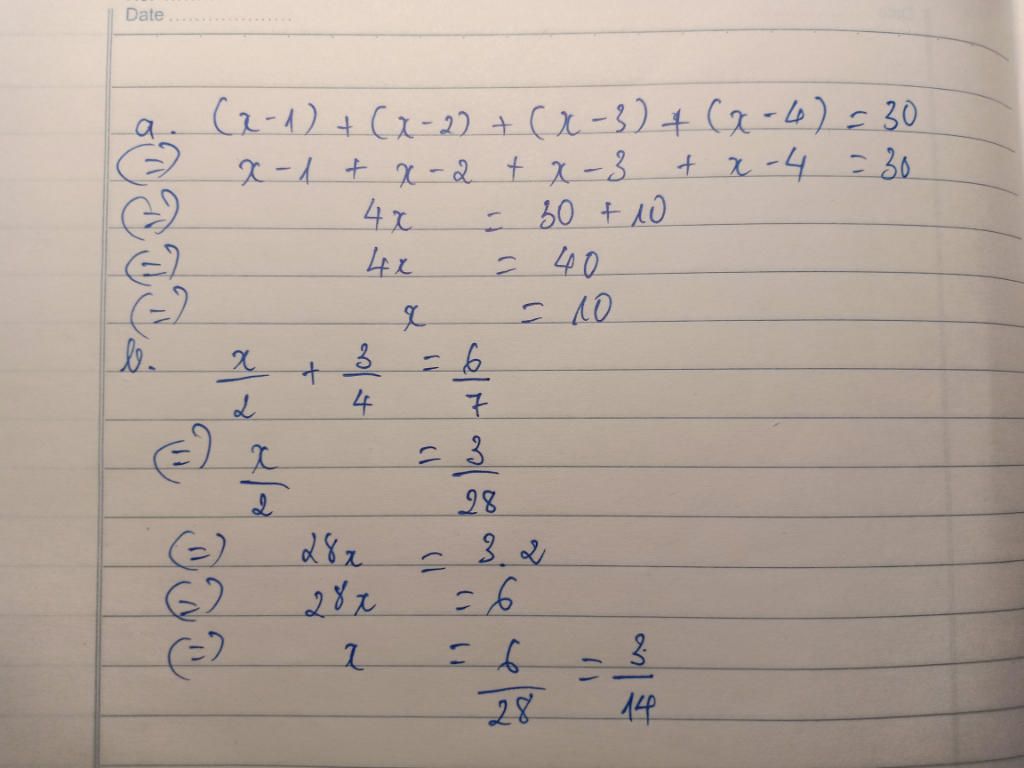 Date ....................
a. (x-1) + (x-2) + (x-3) + (x-4) = 30
(=) x-1 + x-2 + x-3 + x-4 = 30
(=) 4x = 30 + 10
(=) 4x = 40
(=) x = 10
b. x/2 + 3/4 = 6/7
(=) x/2 = 3/28
(=) 28x = 3.2
(=) 28x = 6
(=) x = 6/28 = 3/14